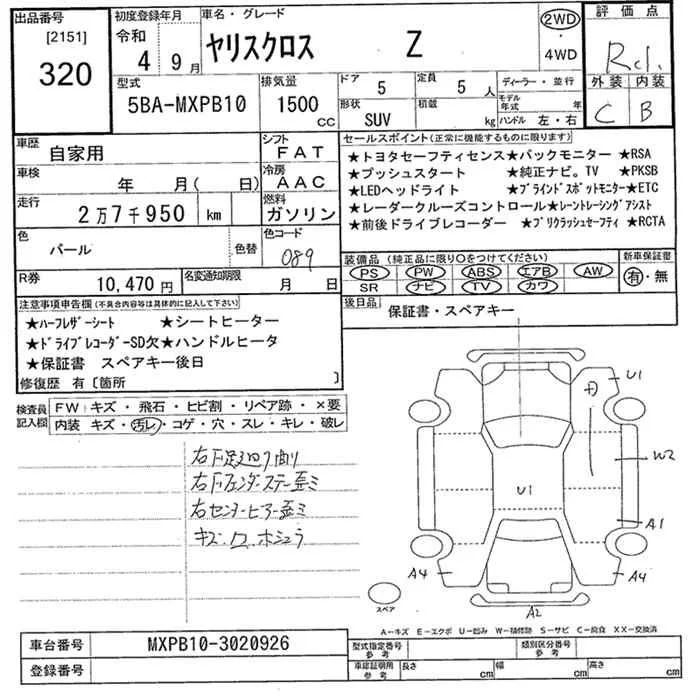 出品番号
[2151]
320
初度登録年月
令和 4年 9月
車名・グレード
ヤリスクロス Z
2WD・4WD
評価点
R
外装 C
内装 B
型式
5BA-MXPB10
排気量
1500 CC
ドア 5
定員 5人
形状 SUV
積載 kg
ディーラー・並行
モデル年式 年
ハンドル 左・右
車歴 自家用
シフト FAT
車検 年 月(日)
冷房 AAC
走行 2万7千950 km
燃料 ガソリン
色 パール 色替
色コード 089
R券 10,470円
名変通知期限 月 日
セールスポイント(正常に機能するものに限ります)
★トヨタセーフティセンス★バックモニター ★RSA
★プッシュスタート ★純正ナビ。TV ★PKSB
★LEDヘッドライト ★ブラインドスポットモニター★ETC
★レーダークルーズコントロール★レーントレーシングアシスト
★前後ドライブレコーダー ★プリクラッシュセーフティ ★RCTA
装備品(純正品に限り○をつけてください)
PS PW ABS エアB AW
SR ナビ TV カワ
新車保証書
有・無
後日品 保証書・スペアキー
注意事項申告欄(不具合内容等は具体的に記入して下さい)
★ハーフレザーシート ★シートヒーター
★ドライブレコーダーSD欠★ハンドルヒータ
★保証書 スペアキー後日
修復歴 有〔箇所 〕
検査員記入欄
FW キズ・飛石・ヒビ割・リペア跡・×要
内装 キズ・汚レ・コゲ・穴・スレ・キレ・破レ
右F足廻り曲り
右Fフェンダーステー歪ミ
右センターピラー歪ミ
キズ・凹 ホシュウ
U1
W2
A1
U1
A4
A4
A2
スペア
A−キズ E−エクボ U−凹み W−補修跡 S−サビ C−腐食 XX−交換済
車台番号 MXPB10-3020926
登録番号
型式指定番号 参考
類別区分番号 参考
車庫証明用 参考
長さ cm
幅 cm
高さ cm